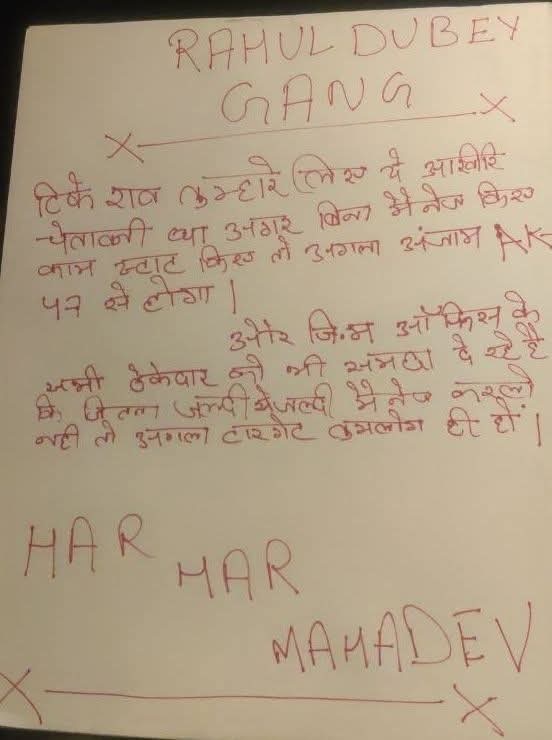 RAHUL DUBEY
GANG
टिके राव तुम्हारे लिए ये आखिरि
चेतावनी था अगर बिना मैनेज किए
काम स्टाट किए तो अगला अंजाम AK-
47 से होगा |
और जि.म ऑफिस के
सभी ठेकेदार को भी समझा दे रहे है
कि जितना जल्दी से जल्दी मैनेज करलो
नही तो अगला टारगेट तुमलोग ही हों |
HAR HAR
MAHADEV